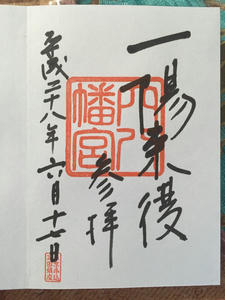 一陽来復
穴八幡宮
参拝
平成二十八年六月十七日